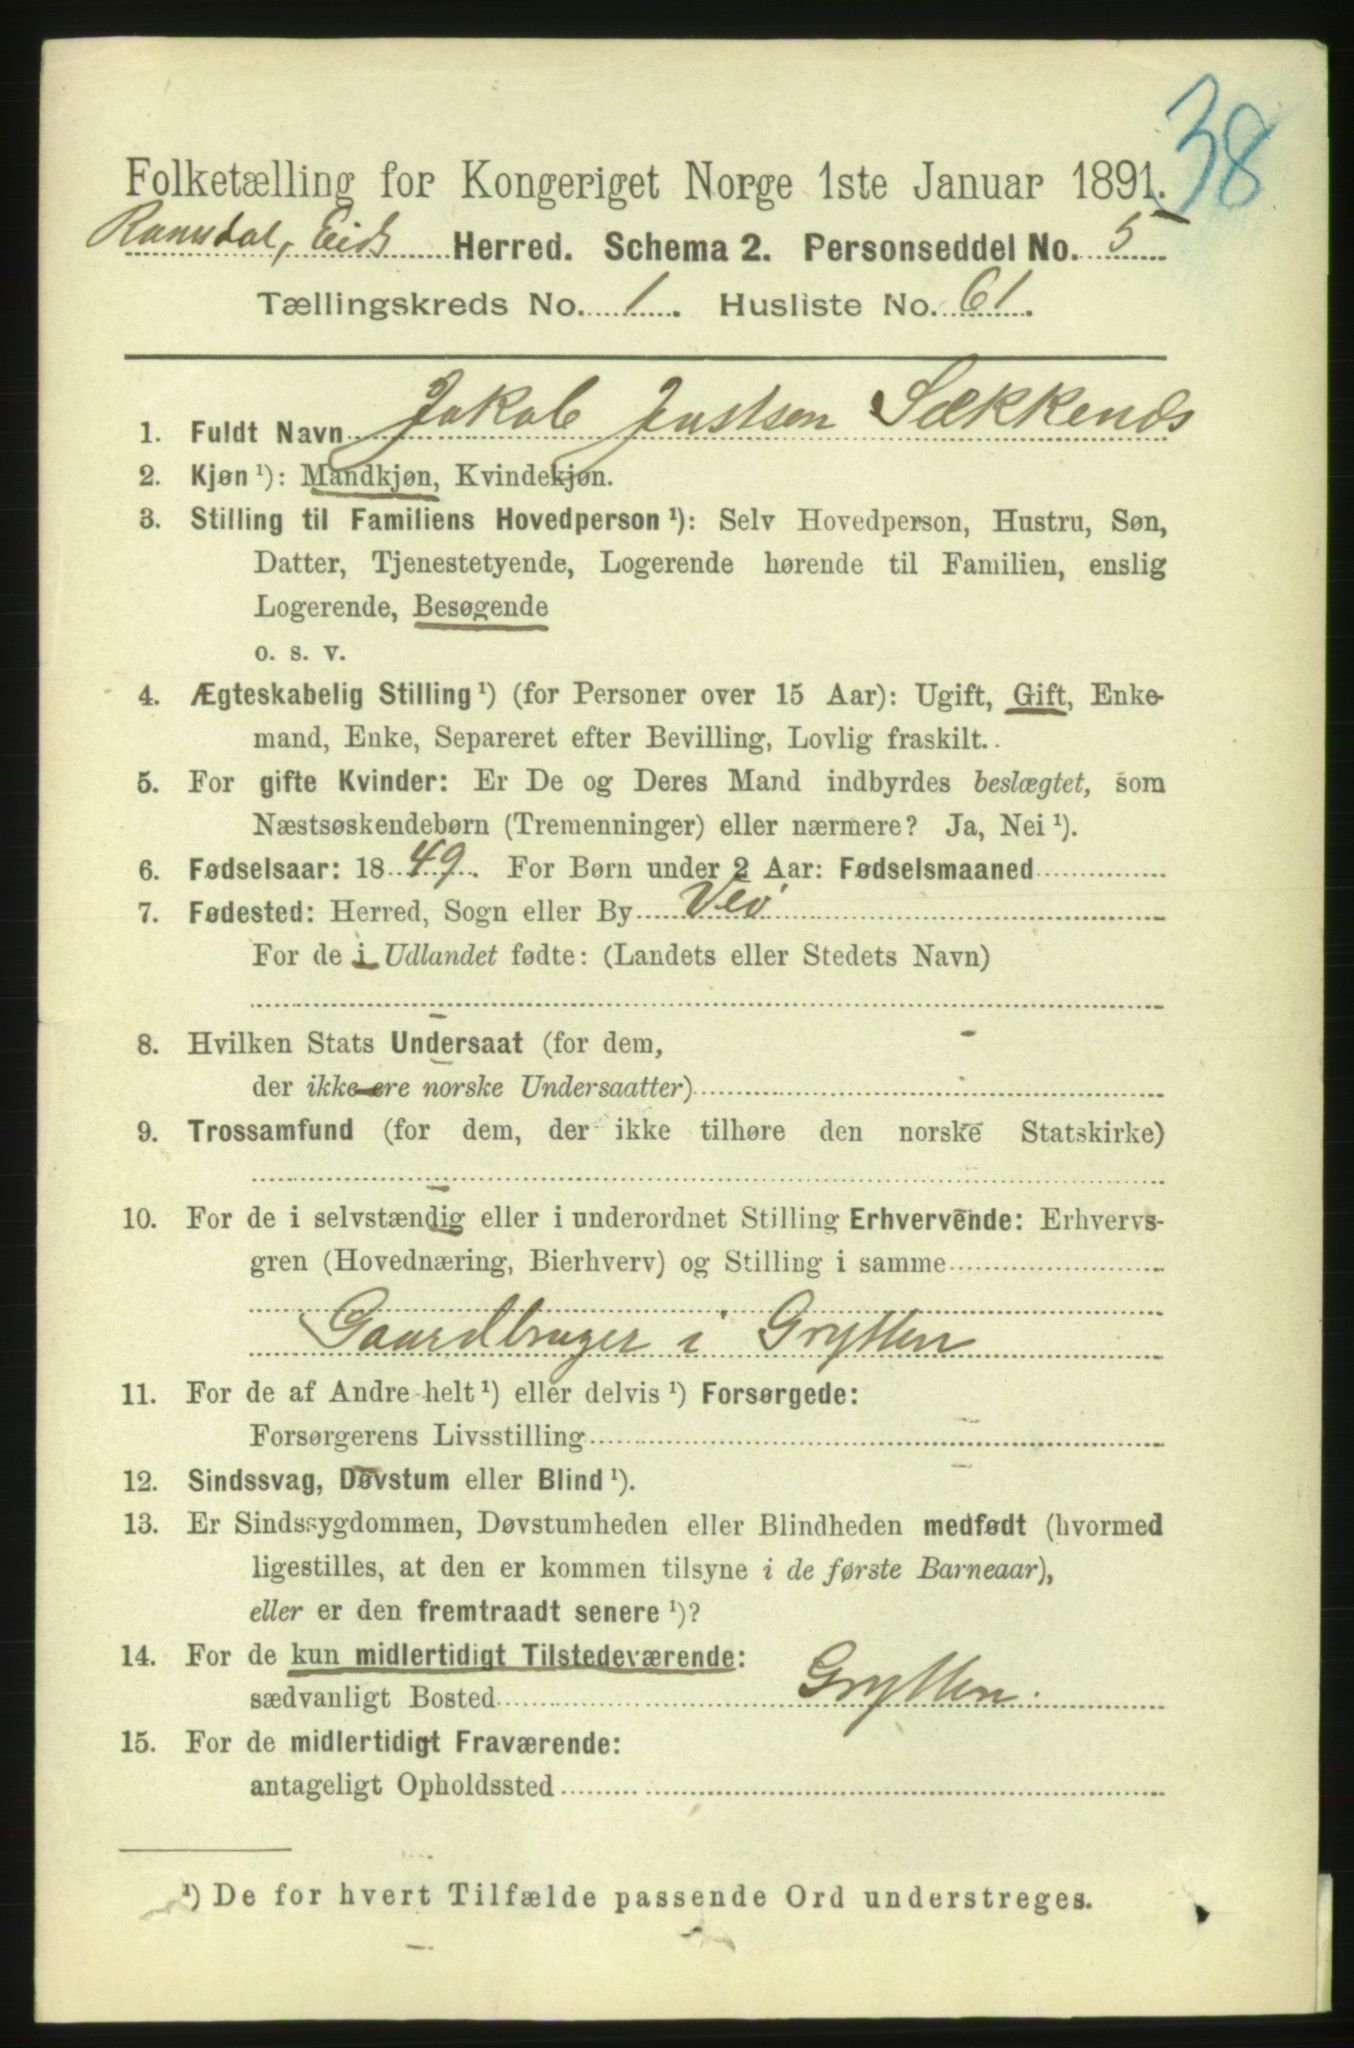 38
Folketælling for Kongeriget Norge 1ste Januar 1891.
Romsdal, Eids Herred. Schema 2. Personseddel No. 5
Tællingskreds No. 1. Husliste No. 61.
1. Fuldt Navn Jakob Justsen Sækkenæs
2. Kjøn ¹): Mandkjøn, Kvindekjøn.
3. Stilling til Familiens Hovedperson ¹): Selv Hovedperson, Hustru, Søn,
Datter, Tjenestetyende, Logerende hørende til Familien, enslig
Logerende, Besøgende
o. s. v.
4. Ægteskabelig Stilling ¹) (for Personer over 15 Aar): Ugift, Gift, Enke-
mand, Enke, Separeret efter Bevilling, Lovlig fraskilt.
5. For gifte Kvinder: Er De og Deres Mand indbyrdes beslægtet, som
Næstsøskendebørn (Tremenninger) eller nærmere? Ja, Nei ¹).
6. Fødselsaar: 1849. For Børn under 2 Aar: Fødselsmaaned
7. Fødested: Herred, Sogn eller By Veø
For de i Udlandet fødte: (Landets eller Stedets Navn)
8. Hvilken Stats Undersaat (for dem,
der ikke ere norske Undersaatter)
9. Trossamfund (for dem, der ikke tilhøre den norske Statskirke)
10. For de i selvstændig eller i underordnet Stilling Erhvervende: Erhvervs-
gren (Hovednæring, Bierhverv) og Stilling i samme
Gaardbruger i Grytten
11. For de af Andre helt ¹) eller delvis ¹) Forsørgede:
Forsørgerens Livsstilling
12. Sindssvag, Døvstum eller Blind ¹).
13. Er Sindssygdommen, Døvstumheden eller Blindheden medfødt (hvormed
ligestilles, at den er kommen tilsyne i de første Barneaar),
eller er den fremtraadt senere ¹)?
14. For de kun midlertidigt Tilstedeværende:
sædvanligt Bosted Grytten.
15. For de midlertidigt Fraværende:
antageligt Opholdssted
¹) De for hvert Tilfælde passende Ord understreges.